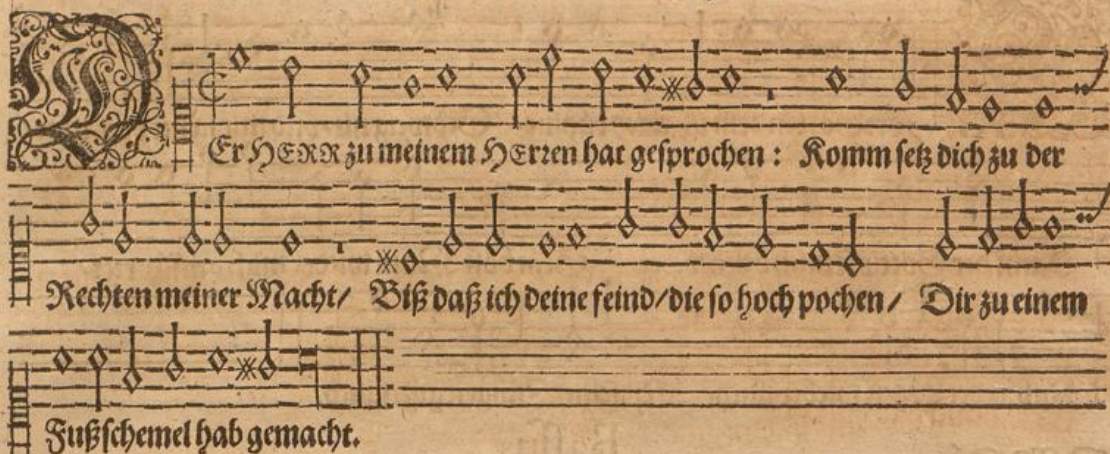 DEr HERR zu meinem HErren hat gesprochen: Komm setz dich zu der
Rechten meiner Macht/ Biß daß ich deine feind/die so hoch pochen/ Dir zu einem
Fußschemel hab gemacht.